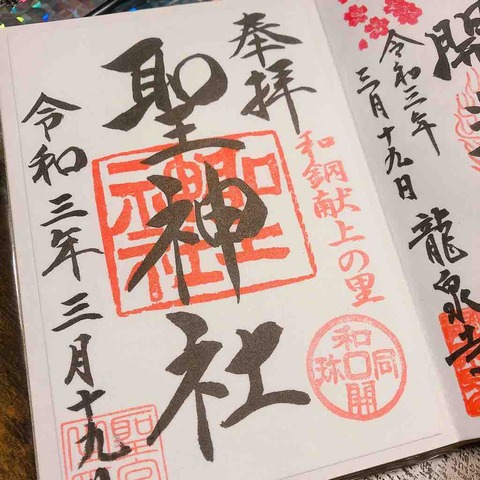 奉拝
聖神社
和銅献上の里
和同開珎
聖神社
令和三年三月十九日
令和三年
三月十九日
龍泉寺